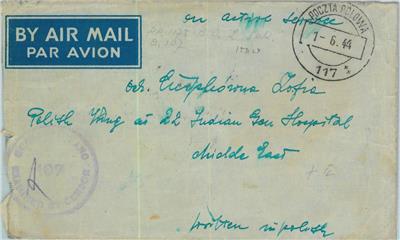 on active service
BY AIR MAIL
PAR AVION
POCZTA POLOWA
1-6.44
117
Zofia
Polish Wing at 22 Indian Gen Hospital
Middle East
107
written in polish